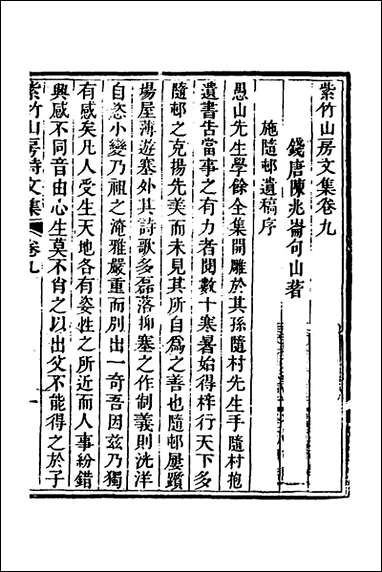 紫竹山房文集卷九
錢唐陳兆崙句山著
施隨邨遺稿序
愚山先生學餘全集開雕於其孫隨村先生手隨村抱
遺書告當事之有力者閱數十寒暑始得梓行天下多
隨邨之克揚先美而未見其所自爲之善也隨邨屢躓
場屋薄遊塞外其詩歌多磊落抑塞之作制義則洸洋
自恣小變乃祖之淹雅嚴重而別出一奇吾因茲乃獨
有感矣凡人受生天地各有姿性之所近而人事紛錯
興感不同音由心生莫不肖之以出父不能得之於子
紫竹山房詩文集
卷九
一